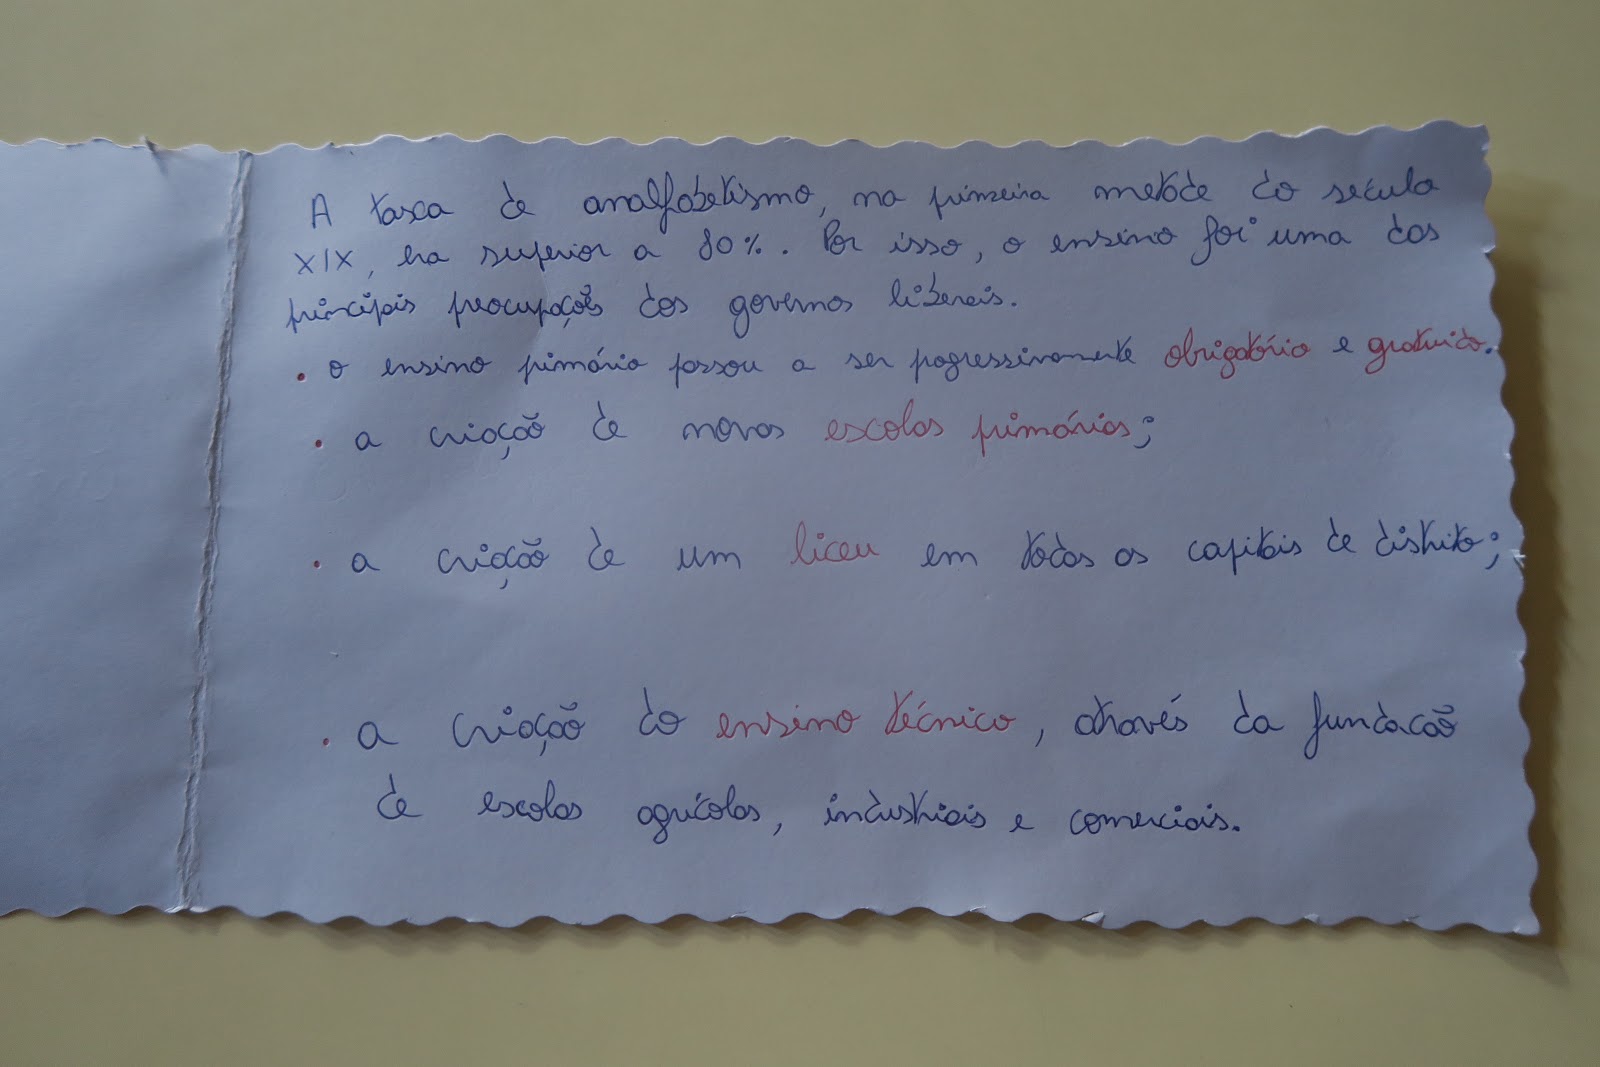 A taxa de analfabetismo, na primeira metade do século
XIX, era superior a 80%. Por isso, o ensino foi uma das
principais preocupações dos governos liberais.
• o ensino primário passou a ser progressivamente obrigatório e gratuito.
• a criação de novas escolas primárias;
• a criação de um liceu em todas as capitais de distrito;
• a criação do ensino técnico, através da fundacão
de escolas agrícolas, industriais e comerciais.